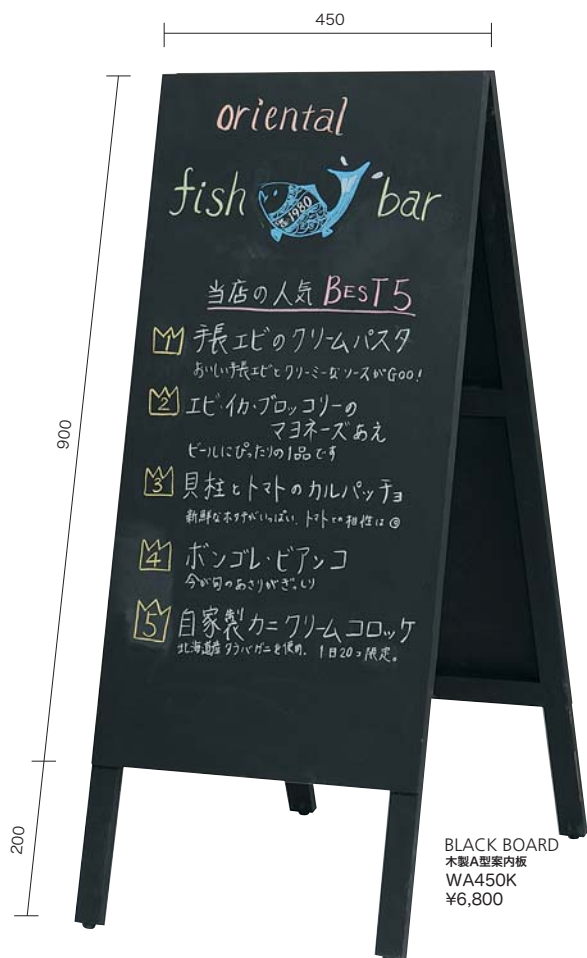 450
oriental
fish 1980 bar
当店の人気 BEST5
1 手長エビのクリームパスタ
おいしい手長エビとクリーミーなソースがGOO!
2 エビ・イカ・ブロッコリーの
マヨネーズあえ
ビールにぴったりの1品です
900
3 貝柱とトマトのカルパッチョ
新鮮なホタテがいっぱい。トマトとの相性は
4 ボンゴレ・ビアンコ
今が旬のあさりがぎっしり
5 自家製カニクリームコロッケ
北海道産タラバガニを使用。1日20コ限定。
200
BLACK BOARD
木製A型案内板
WA450K
¥6,800